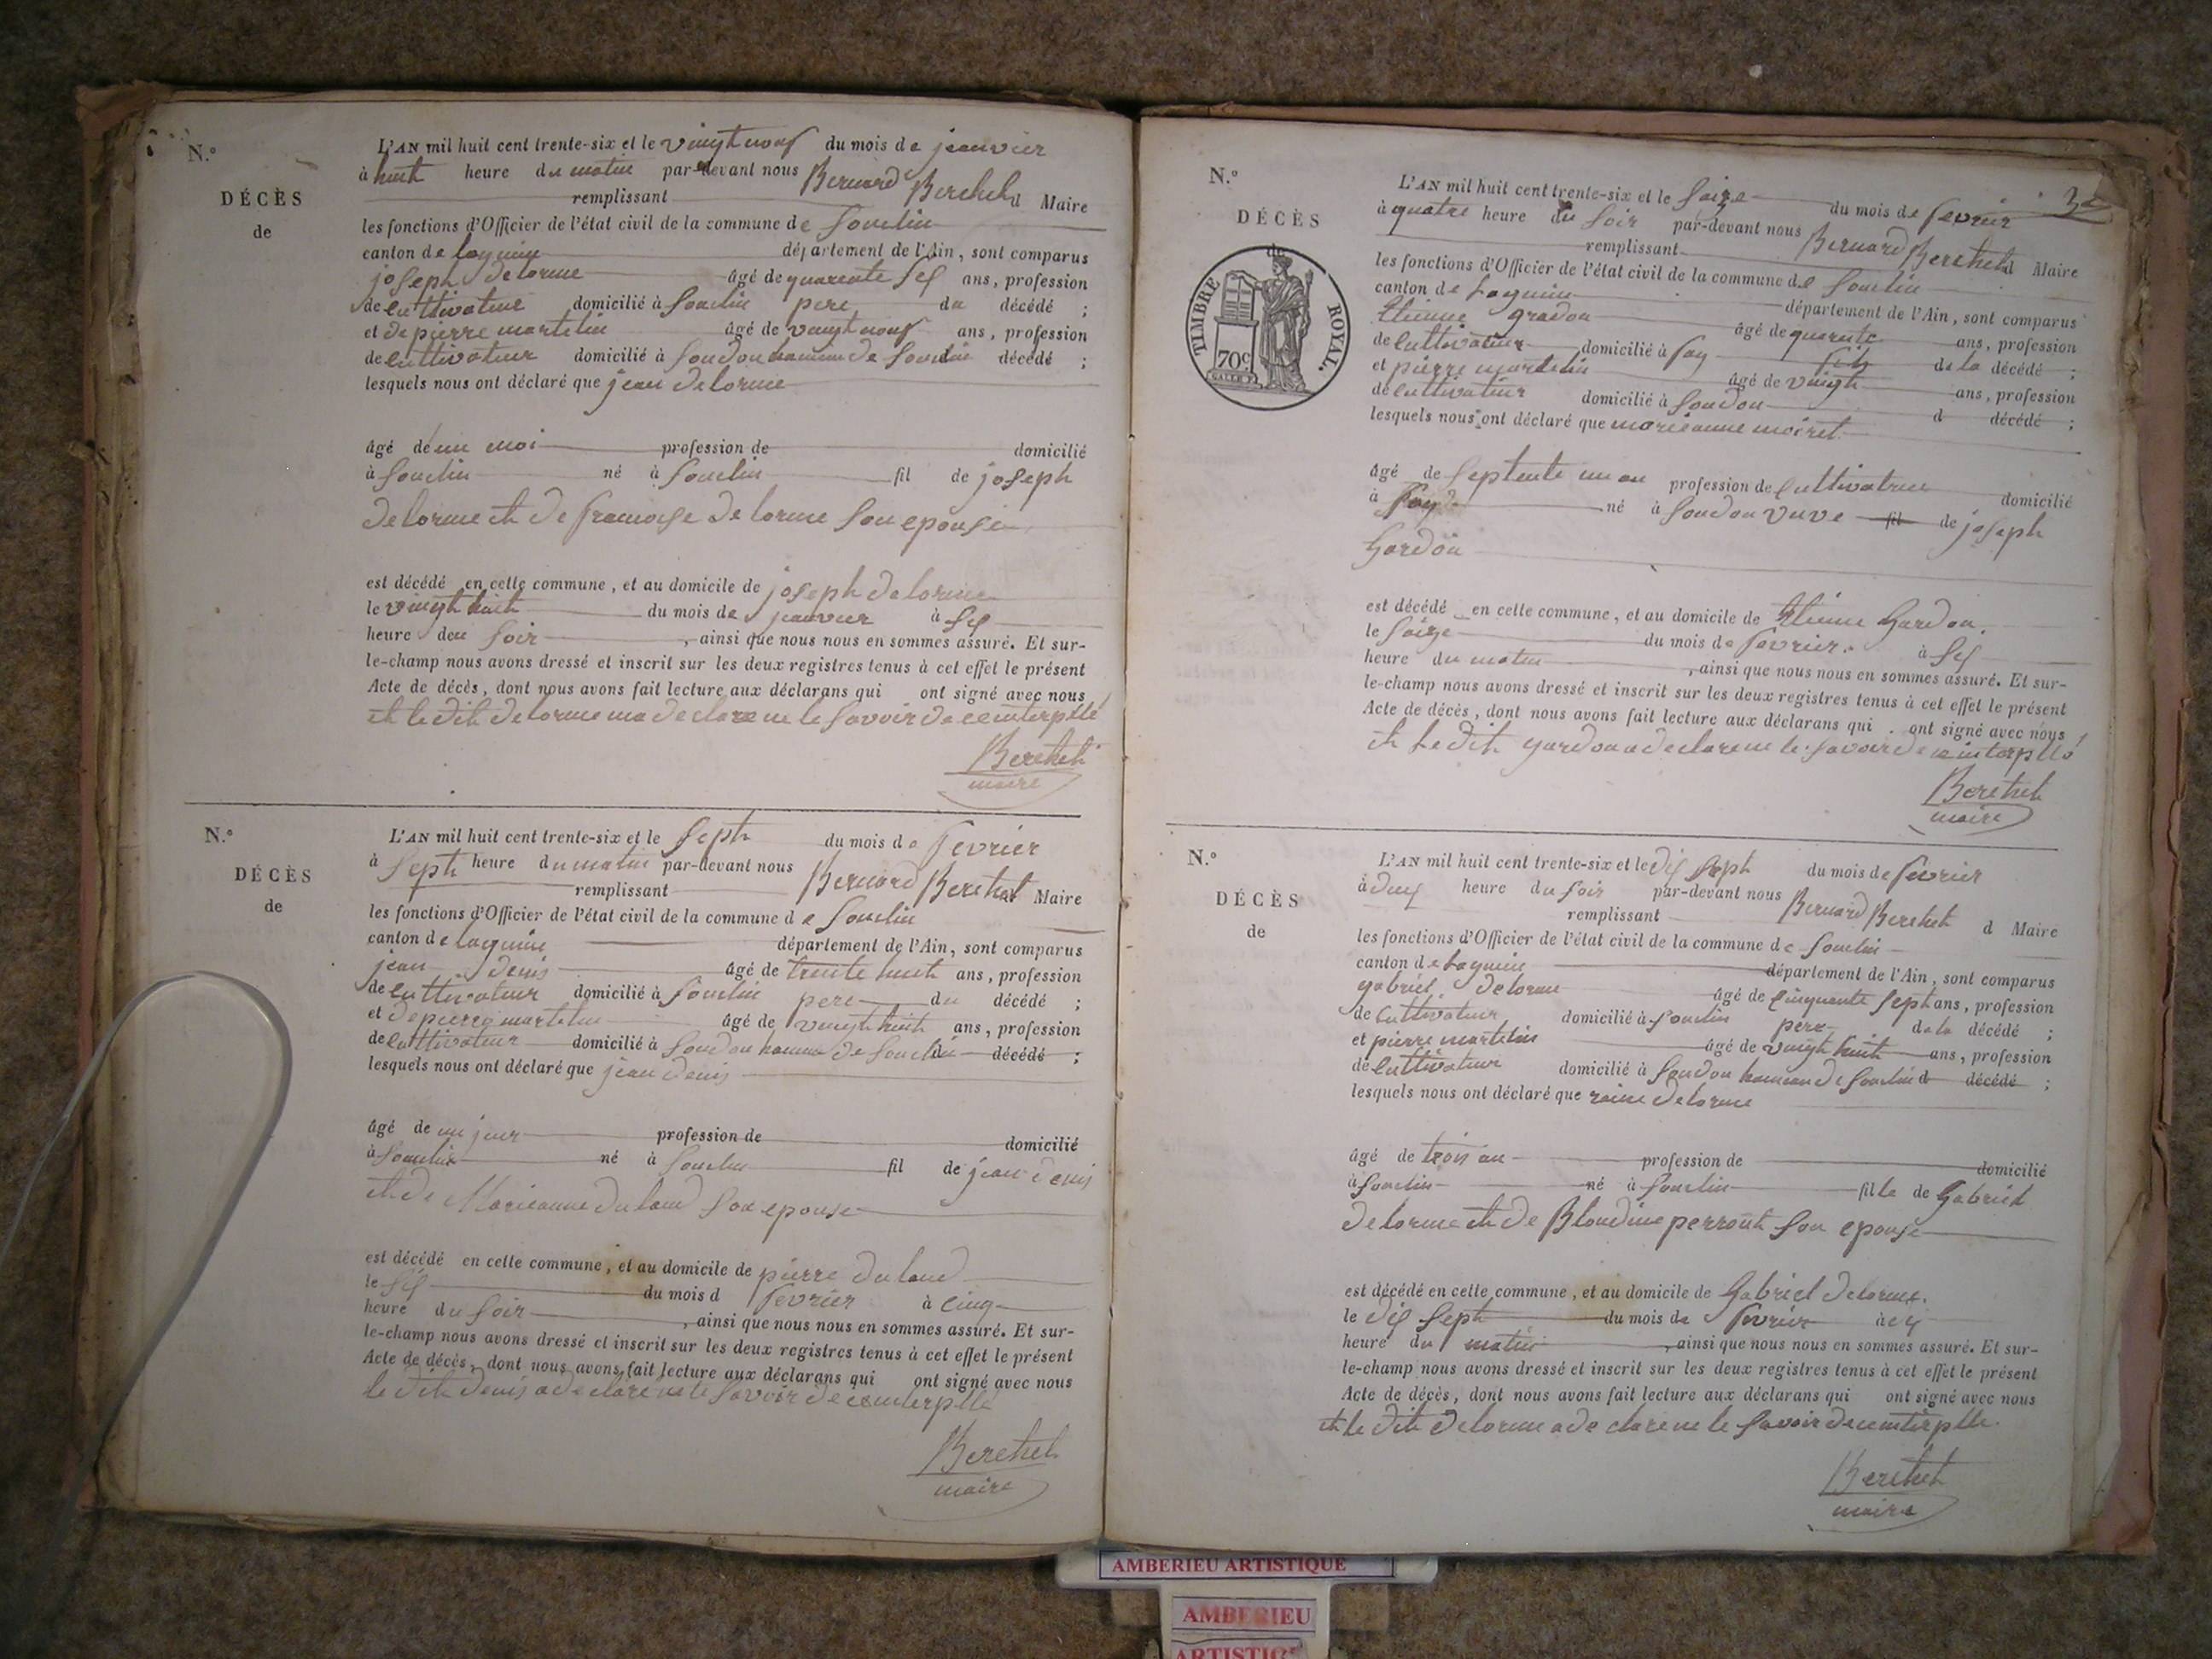 N.º
DÉCÈS
de
L'AN mil huit cent trente-six et le vingt nouf du mois de jeanvier
à huit heure du matin par-devant nous Bernard Berthet d Maire
remplissant
les fonctions d'Officier de l'état civil de la commune de Souclin
canton de lagnieu département de l'Ain, sont comparus
joseph delorme âgé de quarente sis ans, profession
de cultivateur domicilié à Souclin pere du décédé ;
et de pierre martelin âgé de vaingt nouf ans, profession
de cultivateur domicilié à Soudon hameau de Souclin décédé ;
lesquels nous ont déclaré que jean delorme
âgé de un moi profession de domicilié
à Souclin né à Souclin fil de joseph
delorme et de francoise delorme Son epouse
est décédé en cette commune, et au domicile de joseph delorme
le vingt huit du mois de jeanvier à sis
heure deu Soir, ainsi que nous nous en sommes assuré. Et sur-
le-champ nous avons dressé et inscrit sur les deux registres tenus à cet effet le présent
Acte de décès, dont nous avons fait lecture aux déclarans qui ont signé avec nous
et le dit delorme ma declare ne le savoir de ce interpllé
Berthet
maire
N.º
DÉCÈS
de
L'AN mil huit cent trente-six et le Septh du mois de fevrier
à Septh heure du matin par-devant nous Bernard Berethet Maire
remplissant
les fonctions d'Officier de l'état civil de la commune de Souclin
canton de lagnieu département de l'Ain, sont comparus
jean denis âgé de trente huit ans, profession
de cultivateur domicilié à Souclin pere du décédé ;
et de pierre martelin âgé de vingt huit ans, profession
de cultivateur domicilié à Soudon hameau de Souclin décédé ;
lesquels nous ont déclaré que jean denis
âgé de un jour profession de domicilié
à Souclin né à Souclin fil de jean denis
et de Marieanne dulaud Son epouse
est décédé en cette commune, et au domicile de pierre dulaud
le sis du mois d fevrier à cinq
heure du Soir, ainsi que nous nous en sommes assuré. Et sur-
le-champ nous avons dressé et inscrit sur les deux registres tenus à cet effet le présent
Acte de décès, dont nous avons fait lecture aux déclarans qui ont signé avec nous
le dit denis a declare ne le savoir de ce interpllé
Berethet
maire
N.º
DÉCÈS
de
TIMBRE ROYAL.
70c
L'AN mil huit cent trente-six et le Saize du mois de fevrier
à quatre heure du Soir par-devant nous Bernard Berethet d Maire
remplissant
les fonctions d'Officier de l'état civil de la commune de Souclin
canton de Lagnieu département de l'Ain, sont comparus
Etienne gradon âgé de quarente ans, profession
de cultivateur domicilié à fay fils de la décédé ;
et pierre martelin âgé de vaingt ans, profession
de cultivateur domicilié à Soudon d décédé ;
lesquels nous ont déclaré que marieanne moiret
âgé de septente un an profession de cultivatrice domicilié
à fay né à Soudon vuve fil de joseph
Gardon
est décédé en cette commune, et au domicile de Etienne Gardon.
le Saize du mois de fevrier à sis
heure du matin, ainsi que nous nous en sommes assuré. Et sur-
le-champ nous avons dressé et inscrit sur les deux registres tenus à cet effet le présent
Acte de décès, dont nous avons fait lecture aux déclarans qui ont signé avec nous
et le dit gardon a declare ne le savoir de ce interpllé
Berethet
maire
N.º
DÉCÈS
de
L'AN mil huit cent trente-six et le dis Septh du mois de fevrier
à deus heure du soir par-devant nous Bernard Berethet d Maire
remplissant
les fonctions d'Officier de l'état civil de la commune de Souclin
canton de Lagnieu département de l'Ain, sont comparus
gabriel delorme âgé de cinquante septh ans, profession
de cultivateur domicilié à Souclin pere de la décédé ;
et pierre martelin âgé de vaingt huit ans, profession
de cultivateur domicilié à Soudon hameau de Souclin d décédé ;
lesquels nous ont déclaré que raine delorme
âgé de trois an profession de domicilié
à Souclin né à Souclin fille de Gabriel
delorme et de Blondine perront Son epouse
est décédé en cette commune, et au domicile de Gabriel delorme.
le dis septh du mois de fevrier à
heure du matin, ainsi que nous nous en sommes assuré. Et sur-
le-champ nous avons dressé et inscrit sur les deux registres tenus à cet effet le présent
Acte de décès, dont nous avons fait lecture aux déclarans qui ont signé avec nous
et le dit delorme a declare ne le savoir de ce interplle.
Berethet
maire
AMBERIEU ARTISTIQUE
AMBERIEU